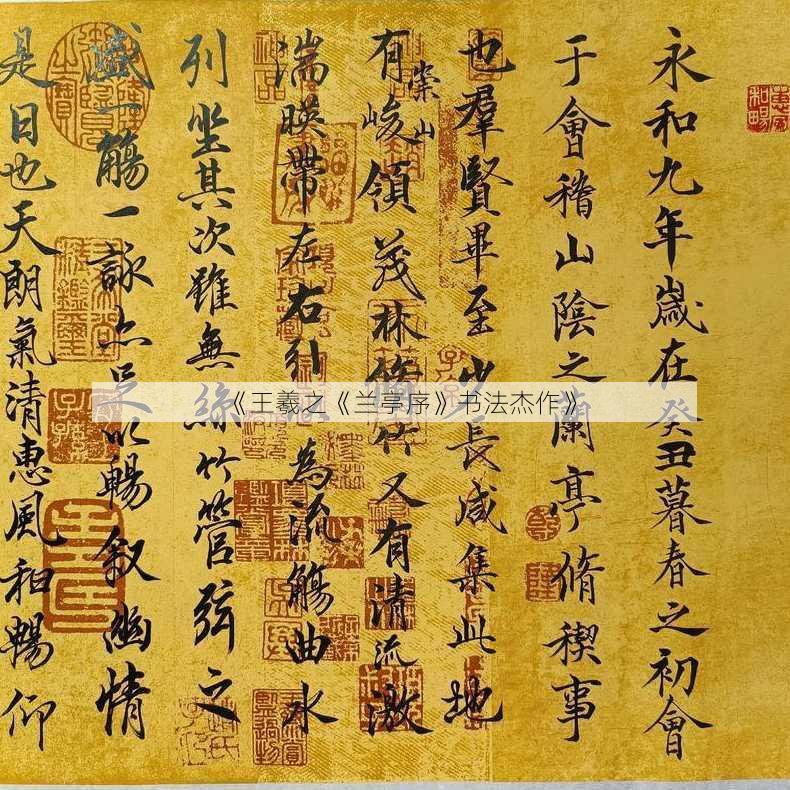 惠風和暢
永和九年歲在癸丑暮春之初會
于會稽山陰之蘭亭脩稧事
也羣賢畢至少長咸集此地
有崇山峻領茂林脩竹又有清流激
湍暎帶左右引為流觴曲水
列坐其次雖無絲竹管弦之
盛一觴一詠亦足以暢叙幽情
是日也天朗氣清惠風和暢仰
《王羲之《兰亭序》书法杰作》